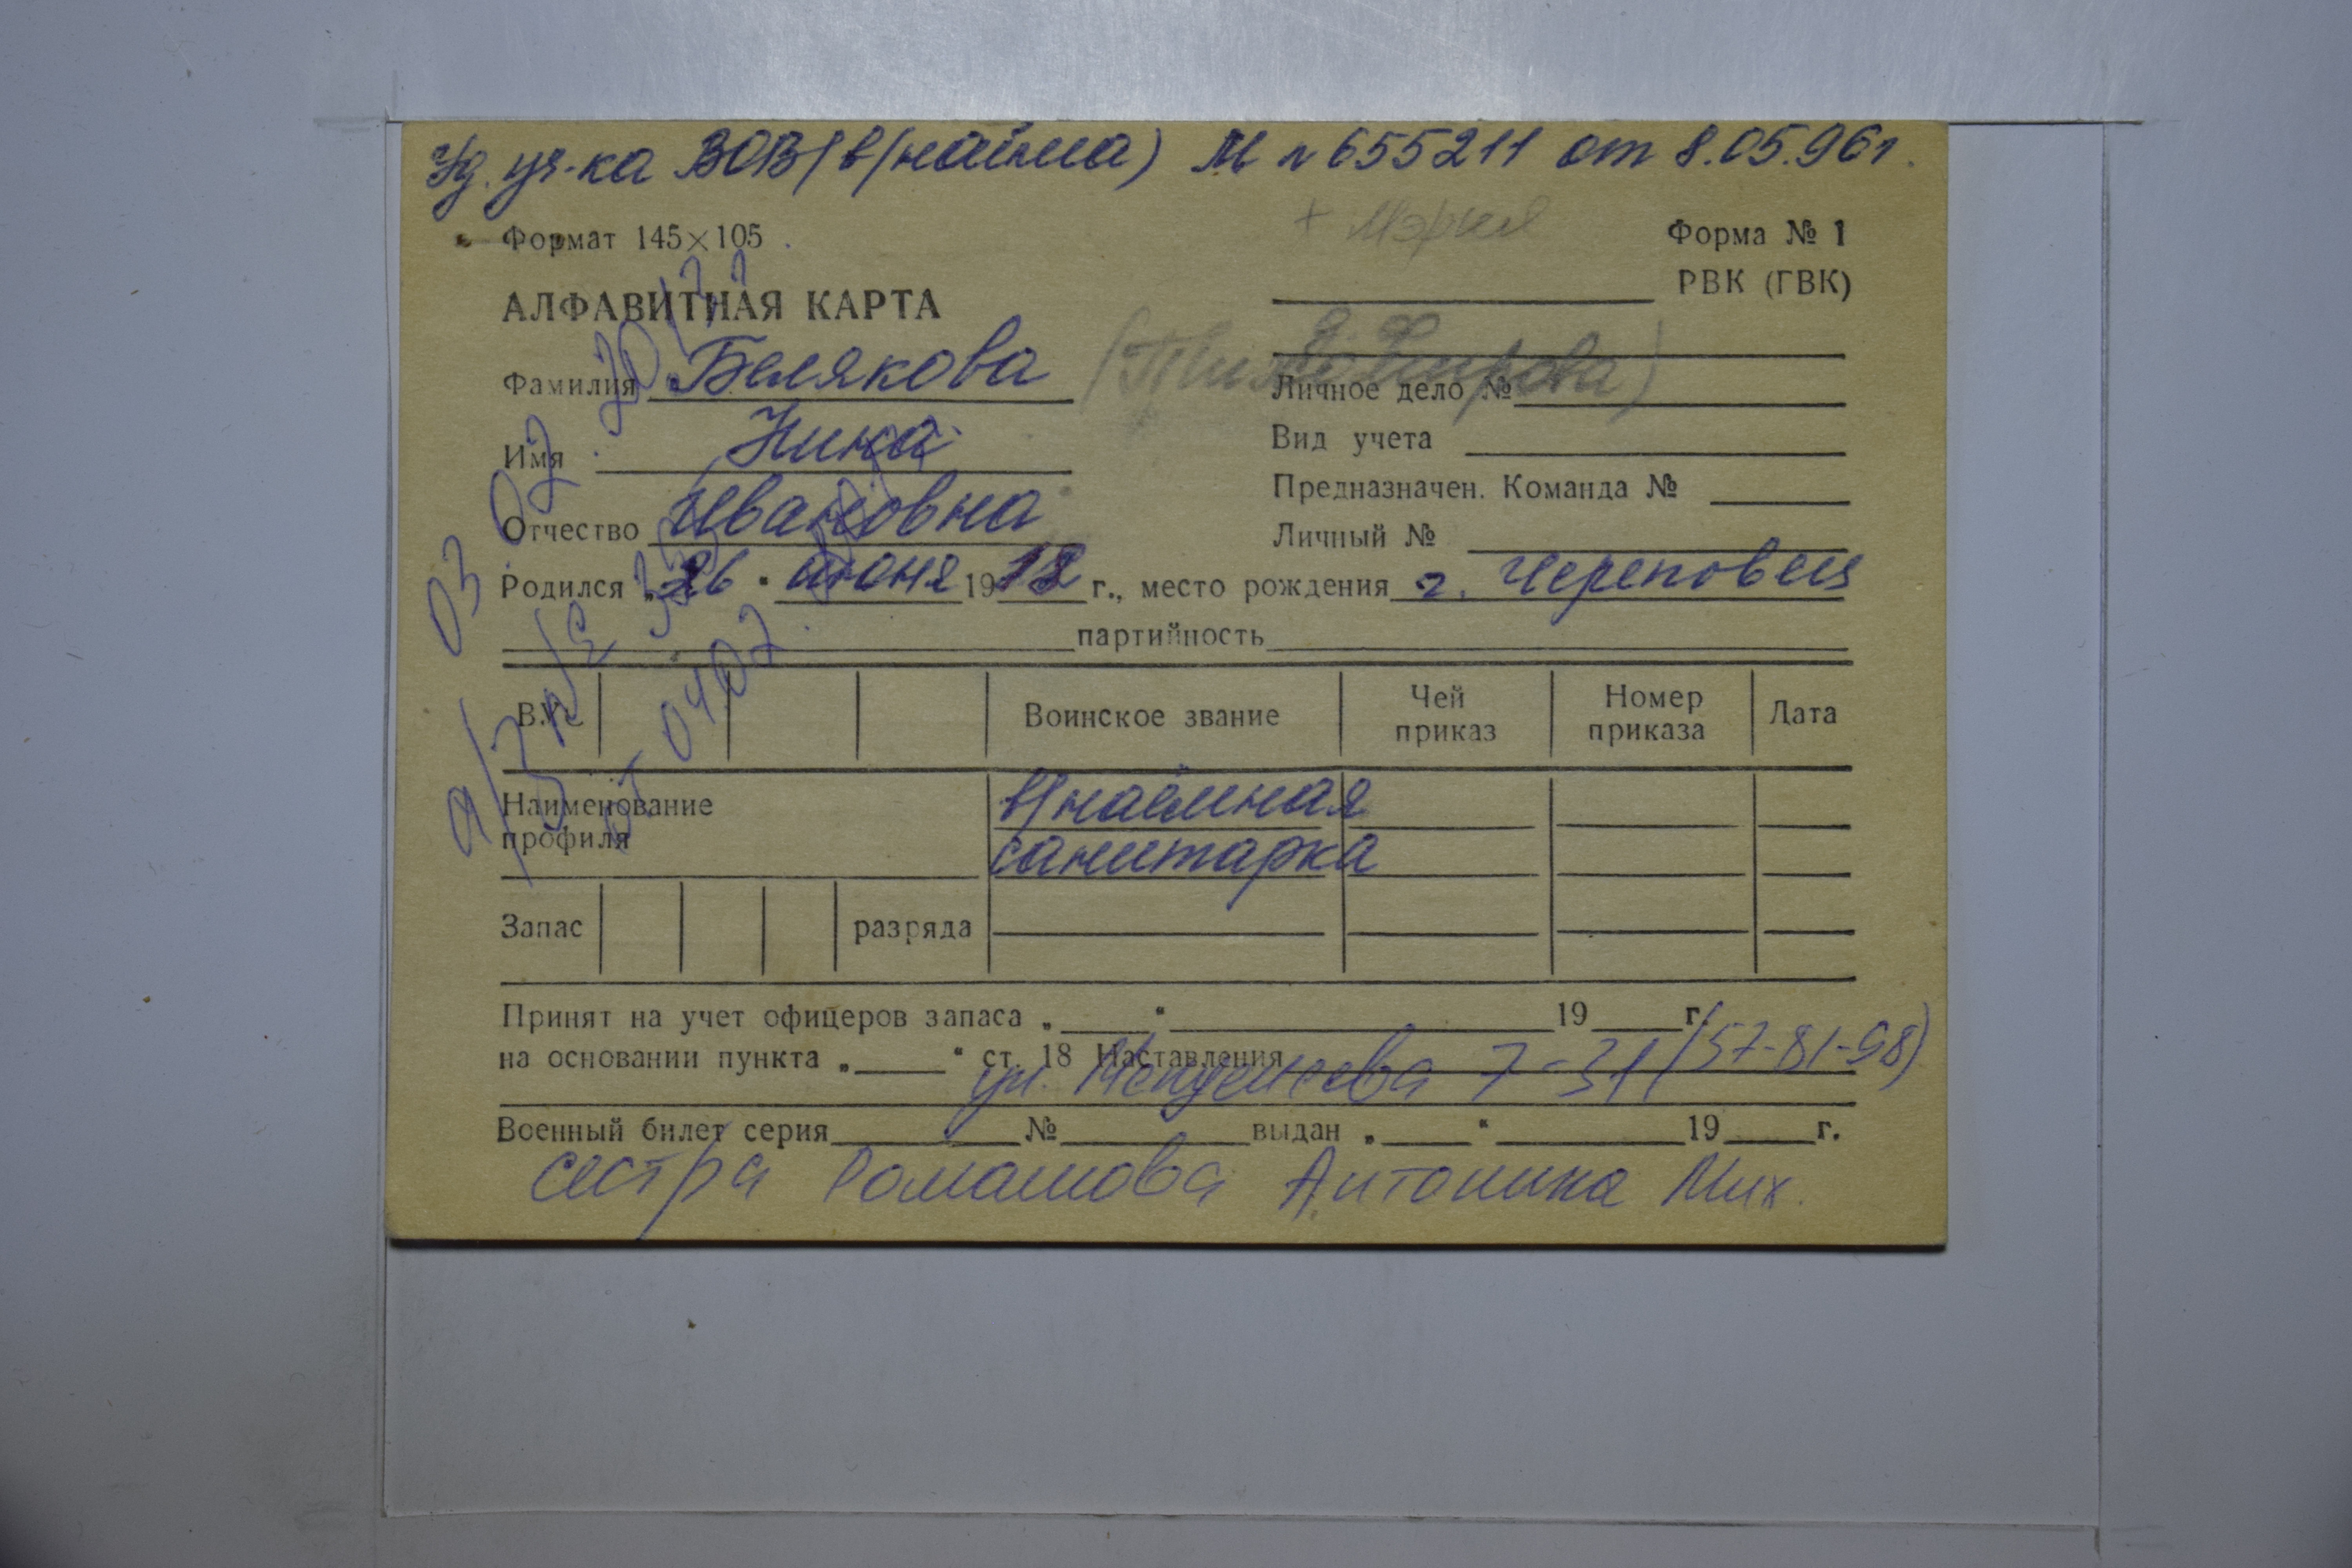 Уд. уч-ка ВОВ (в/найма) М № 655211 от 8.05.96г.
+ Мэрия
Формат 145×105
Форма № 1
РВК (ГВК)
АЛФАВИТНАЯ КАРТА
Фамилия Белякова
Личное дело №
Имя Нина
Вид учета
Предназначен. Команда №
Отчество Ивановна
Личный №
Родился „26" июня 1918 г., место рождения г. Череповец
партийность
03.02.2012
а/з № 
от 04.02.
В.У.С.
Воинское звание
Чей приказ
Номер приказа
Дата
Наименование профиля
в/наёмная
санитарка
Запас
разряда
Принят на учет офицеров запаса „ " 19 г.
(57-81-98)
на основании пункта „ " ст. 18 Наставления
ул. 7-31
Военный билет серия № выдан „ " 19 г.
сестра Ромашова Антонина Мих.